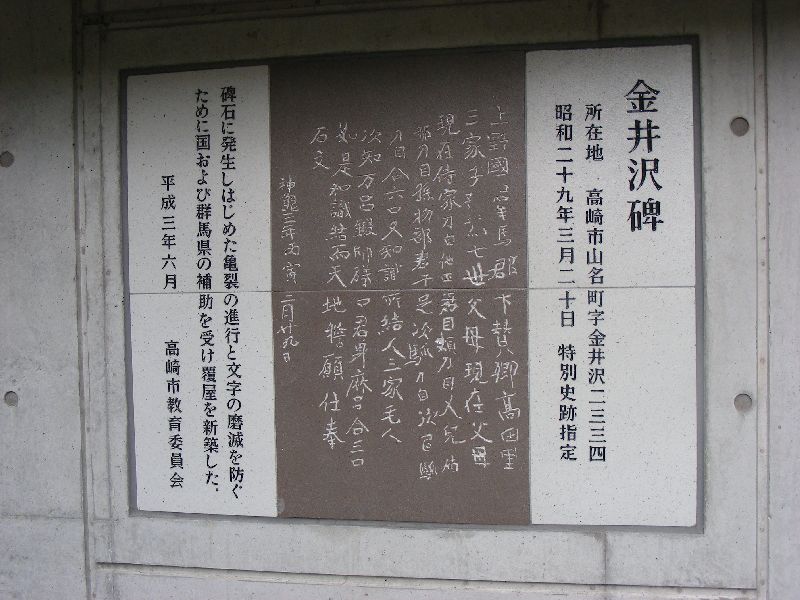 金井沢碑
所在地　高崎市山名町字金井沢二三三四
昭和二十九年三月二十日　特別史跡指定
上野國羣馬郡下賛郷高田里
三家子□為七世父母現在父母
現在侍家刀自他田君目頬刀自又児加
那刀自孫物部君午足次馴刀自次乙馴
刀自合六口又知識所結人三家毛人
次知万呂鍛師礒マ君身麻呂合三口
如是知識結而天地誓願仕奉
石文
神亀三年丙寅二月廿九日
碑石に発生しはじめた亀裂の進行と文字の磨滅を防ぐ
ために国および群馬県の補助を受け覆屋を新築した.
平成三年六月　　高崎市教育委員会